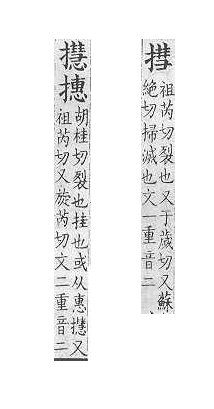 ⿰扌彗
祖芮切裂也又于歲切又蘇
絕切掃滅也文一重音二
⿰扌慧⿰扌惠
胡桂切裂也挂也或从惠⿰扌慧又
祖芮切又旋芮切文二重音二